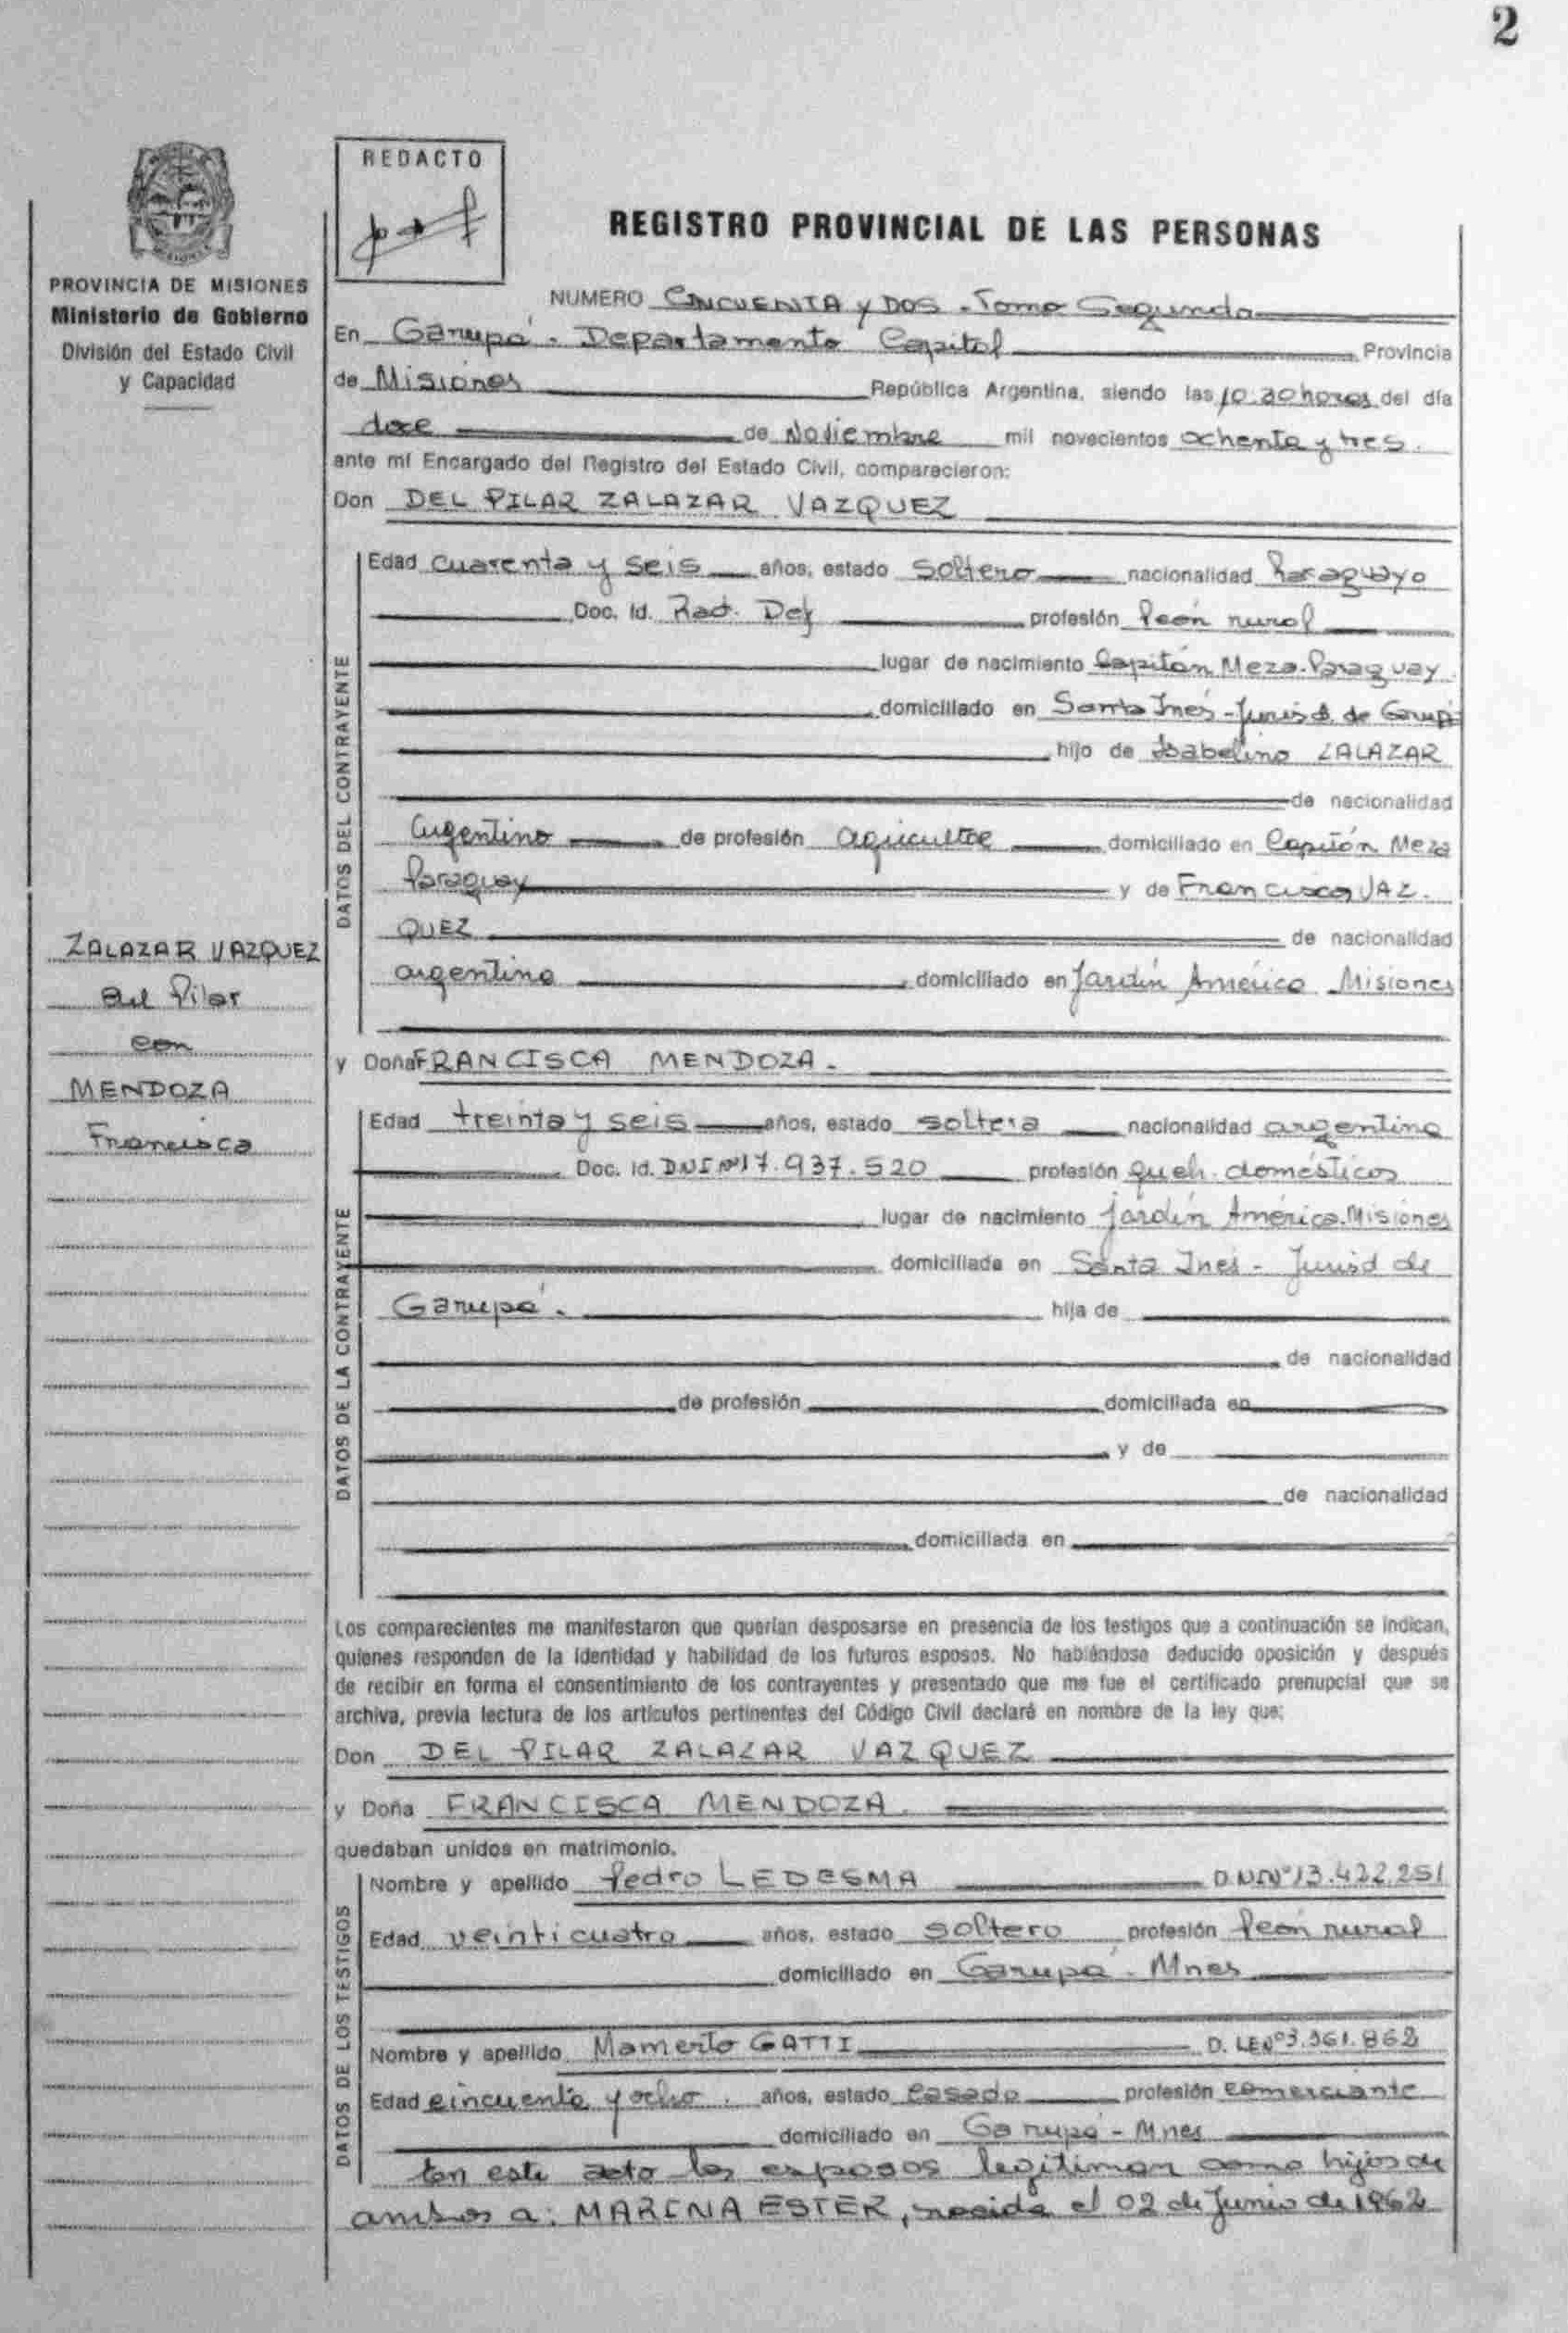 2
REDACTO
REGISTRO PROVINCIAL DE LAS PERSONAS
PROVINCIA DE MISIONES
Ministerio de Gobierno
División del Estado Civil
y Capacidad
NUMERO CINCUENTA y DOS - Tomo Segundo
En Garupá - Departamento Capital Provincia
de Misiones República Argentina, siendo las horas del día
doce de Noviembre mil novecientos ochenta y tres.
ante mí Encargado del Registro del Estado Civil, comparecieron:
Don DEL PILAR ZALAZAR VAZQUEZ
DATOS DEL CONTRAYENTE
Edad cuarenta y seis años, estado soltero nacionalidad Paraguayo
Doc. Id. profesión Peón rural
lugar de nacimiento Capitán Meza. Paraguay
domiciliado en Santa Inés - Jurisd. de Garupá
hijo de Isabelino ZALAZAR
de nacionalidad
Argentino de profesión agricultor domiciliado en Capitán Meza
Paraguay y de Francisca VAZ-
QUEZ de nacionalidad
argentina domiciliado en Jardín América Misiones
ZALAZAR VAZQUEZ
del Pilar
con
MENDOZA
Francisca
y Doña FRANCISCA MENDOZA.
DATOS DE LA CONTRAYENTE
Edad treinta y seis años, estado soltera nacionalidad argentina
Doc. Id. DNI Nº 17.937.520 profesión queh. domésticos
lugar de nacimiento Jardín América. Misiones
domiciliada en Santa Inés - Jurisd de
Garupá. hija de
de nacionalidad
de profesión domiciliada en
y de
de nacionalidad
domiciliada en
Los comparecientes me manifestaron que querían desposarse en presencia de los testigos que a continuación se indican,
quienes responden de la identidad y habilidad de los futuros esposos. No habiéndose deducido oposición y después
de recibir en forma el consentimiento de los contrayentes y presentado que me fue el certificado prenupcial que se
archiva, previa lectura de los artículos pertinentes del Código Civil declaré en nombre de la ley que;
Don DEL PILAR ZALAZAR VAZQUEZ
y Doña FRANCISCA MENDOZA.
quedaban unidos en matrimonio.
DATOS DE LOS TESTIGOS
Nombre y apellido Pedro LEDESMA 13.422.251
Edad veinticuatro años, estado soltero profesión Peón rural
domiciliado en Garupá - Mnes
Nombre y apellido Mamerto GATTI D. LE Nº 3.561.862
Edad cincuenta y ocho. años, estado casado profesión comerciante
domiciliado en Garupá - Mnes
En este acto los esposos legitiman como hijos de
ambos a: MARINA ESTER, nacida el 02 de Junio de 1962